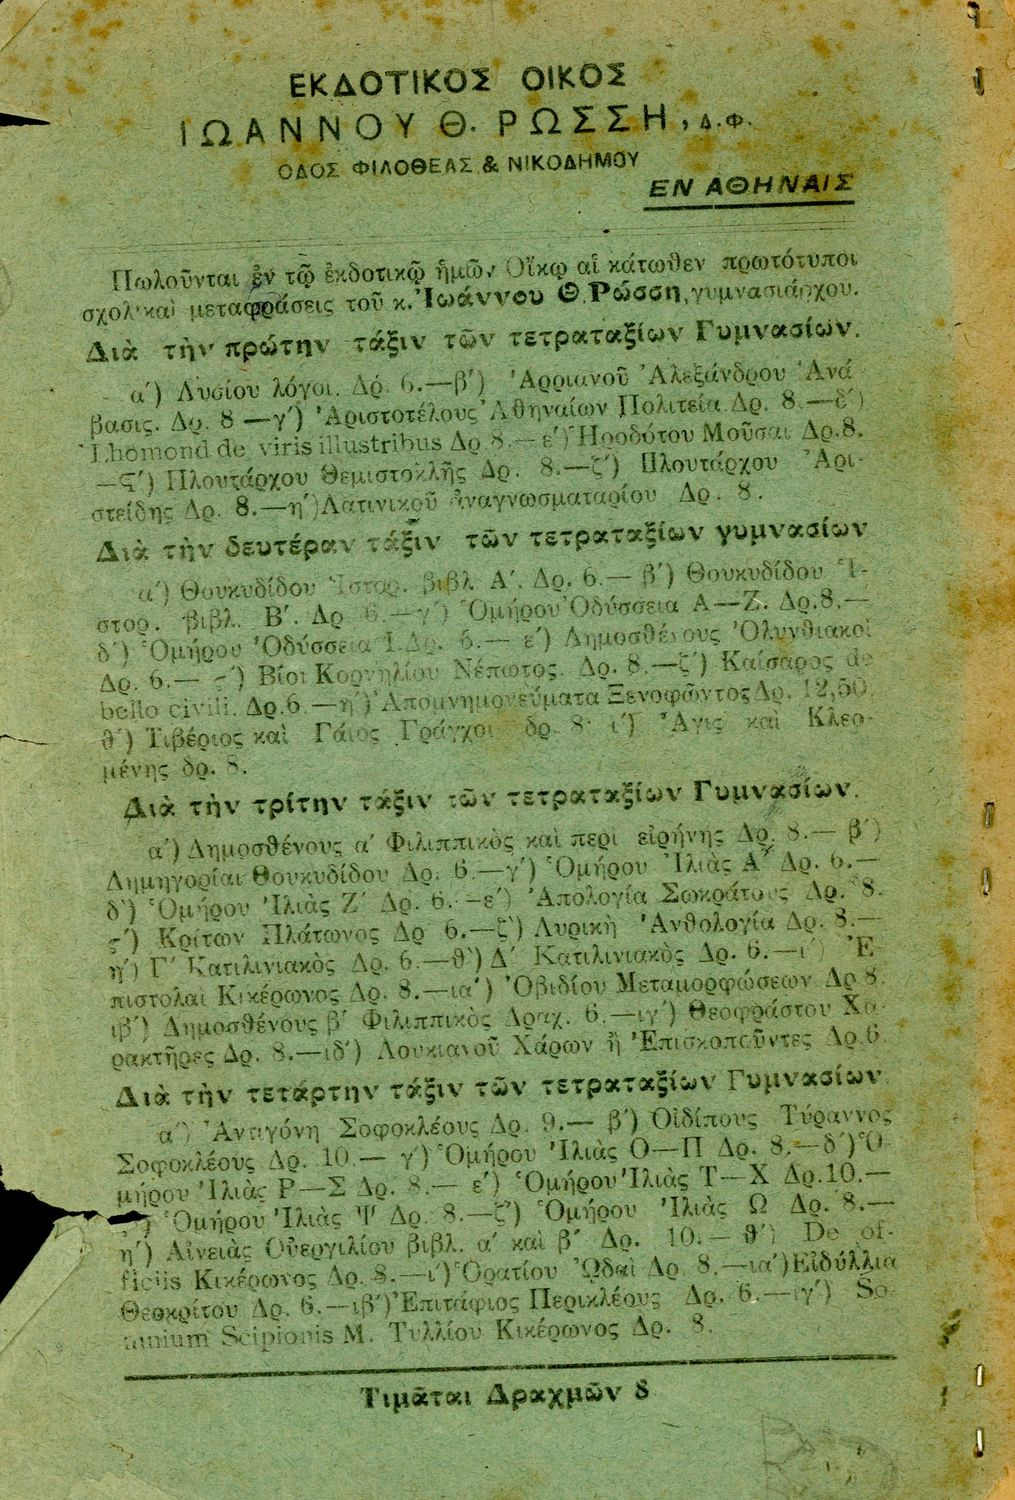 ΕΚΔΟΤΙΚΟΣ ΟΙΚΟΣ
ΙΩΑΝΝΟΥ Θ. ΡΩΣΣΗ, Δ.Φ.
ΟΔΟΣ ΦΙΛΟΘΕΑΣ & ΝΙΚΟΔΗΜΟΥ
ΕΝ ΑΘΗΝΑΙΣ
Πωλοῦνται ἐν τῷ ἐκδοτικῷ ἡμῶν Οἴκῳ αἱ κάτωθεν πρωτότυποι
σχολικαὶ μεταφράσεις τοῦ κ. Ἰωάννου Θ. Ρώσση, γυμνασιάρχου.
Διὰ τὴν πρώτην τάξιν τῶν τετραταξίων Γυμνασίων.
α΄) Λυσίου λόγοι. Δρ. 6.—β΄) Ἀρριανοῦ Ἀλεξάνδρου Ἀνά
βασις. Δρ. 8 —γ΄) Ἀριστοτέλους Ἀθηναίων Πολιτεία Δρ. 8.—δ΄)
Lhomond de viris illustribus Δρ 8.—ε΄) Ἡροδότου Μοῦσαι Δρ.8.
—ϛ΄) Πλουτάρχου Θεμιστοκλῆς Δρ. 8.—ζ΄) Πλουτάρχου Ἀρι-
στείδης Δρ. 8.—η΄) Λατινικοῦ Ἀναγνωσματαρίου Δρ. 8.
Διὰ τὴν δευτέραν τάξιν τῶν τετραταξίων γυμνασίων
α΄) Θουκυδίδου Ἱστορ. βιβλ Α΄. Δρ. 6.— β΄) Θουκυδίδου Ἱ-
στορ. βιβλ. Β΄. Δρ 6.—γ΄) Ὁμήρου Ὀδύσσεια Α—Ζ. Δρ.8.—
δ΄) Ὁμήρου Ὀδύσσεια Ι.Δρ. 6.— ε΄) Δημοσθένους Ὀλυνθιακοί
Δρ. 6.— ϛ΄) Βίοι Κορνηλίου Νέπωτος. Δρ. 8.—ζ΄) Καίσαρος de
bello civili. Δρ.6.—η΄) Ἀπομνημονεύματα Ξενοφῶντος Δρ. 12,50.
θ΄) Τιβέριος καὶ Γάιος Γράγχοι δρ. 8· ι΄) Ἆγις καὶ Κλεο-
μένης δρ. 8.
Διὰ τὴν τρίτην τάξιν τῶν τετραταξίων Γυμνασίων.
α΄) Δημοσθένους α΄ Φιλιππικὸς καὶ περὶ εἰρήνης Δρ. 8.— β΄)
Δημηγορίαι Θουκυδίδου Δρ. 6.—γ΄) Ὁμήρου Ἰλιὰς Α΄ Δρ. 6.—
δ΄) Ὁμήρου Ἰλιὰς Ζ΄ Δρ. 6.—ε΄) Ἀπολογία Σωκράτους Δρ. 8.
ϛ΄) Κρίτων Πλάτωνος Δρ 6.—ζ΄) Λυρικὴ Ἀνθολογία Δρ. 8.—
η΄) Γ΄ Κατιλινιακὸς Δρ. 6.—θ΄) Δ΄ Κατιλινιακὸς Δρ. 6.—ι΄) Ἐ-
πιστολαὶ Κικέρωνος Δρ. 8.—ια΄) Ὀβιδίου Μεταμορφώσεων Δρ 8.
ιβ΄) Δημοσθένους β΄ Φιλιππικὸς Δραχ. 6.—ιγ΄) Θεοφράστου Χα-
ρακτῆρες Δρ. 8.—ιδ΄) Λουκιανοῦ Χάρων ἢ Ἐπισκοποῦντες Δρ.6
Διὰ τὴν τετάρτην τάξιν τῶν τετραταξίων Γυμνασίων
α΄) Ἀντιγόνη Σοφοκλέους Δρ. 9.— β΄) Οἰδίπους Τύραννος
Σοφοκλέους Δρ. 10.— γ΄) Ὁμήρου Ἰλιὰς Ο—Π Δρ. 8.—δ΄) Ὁ-
μήρου Ἰλιὰς Ρ—Σ Δρ. 8.— ε΄) Ὁμήρου Ἰλιὰς Τ—Χ Δρ.10.—
Ὁμήρου Ἰλιὰς Ψ Δρ. 8.—ζ΄) Ὁμήρου Ἰλιὰς Ω Δρ. 8.—
η΄) Αἰνειὰς Οὐεργιλίου βιβλ. α΄ καὶ β΄ Δρ. 10.— θ΄) De of-
ficiis Κικέρωνος Δρ. 8.—ι΄) Ὁρατίου ᾨδαὶ Δρ. 8.—ια΄) Εἰδύλλια
Θεοκρίτου Δρ. 6.—ιβ΄) Ἐπιτάφιος Περικλέους Δρ. 6.—ιγ΄) So-
mnium Scipionis Μ. Τυλλίου Κικέρωνος Δρ. 8.
Τιμᾶται Δραχμῶν 8